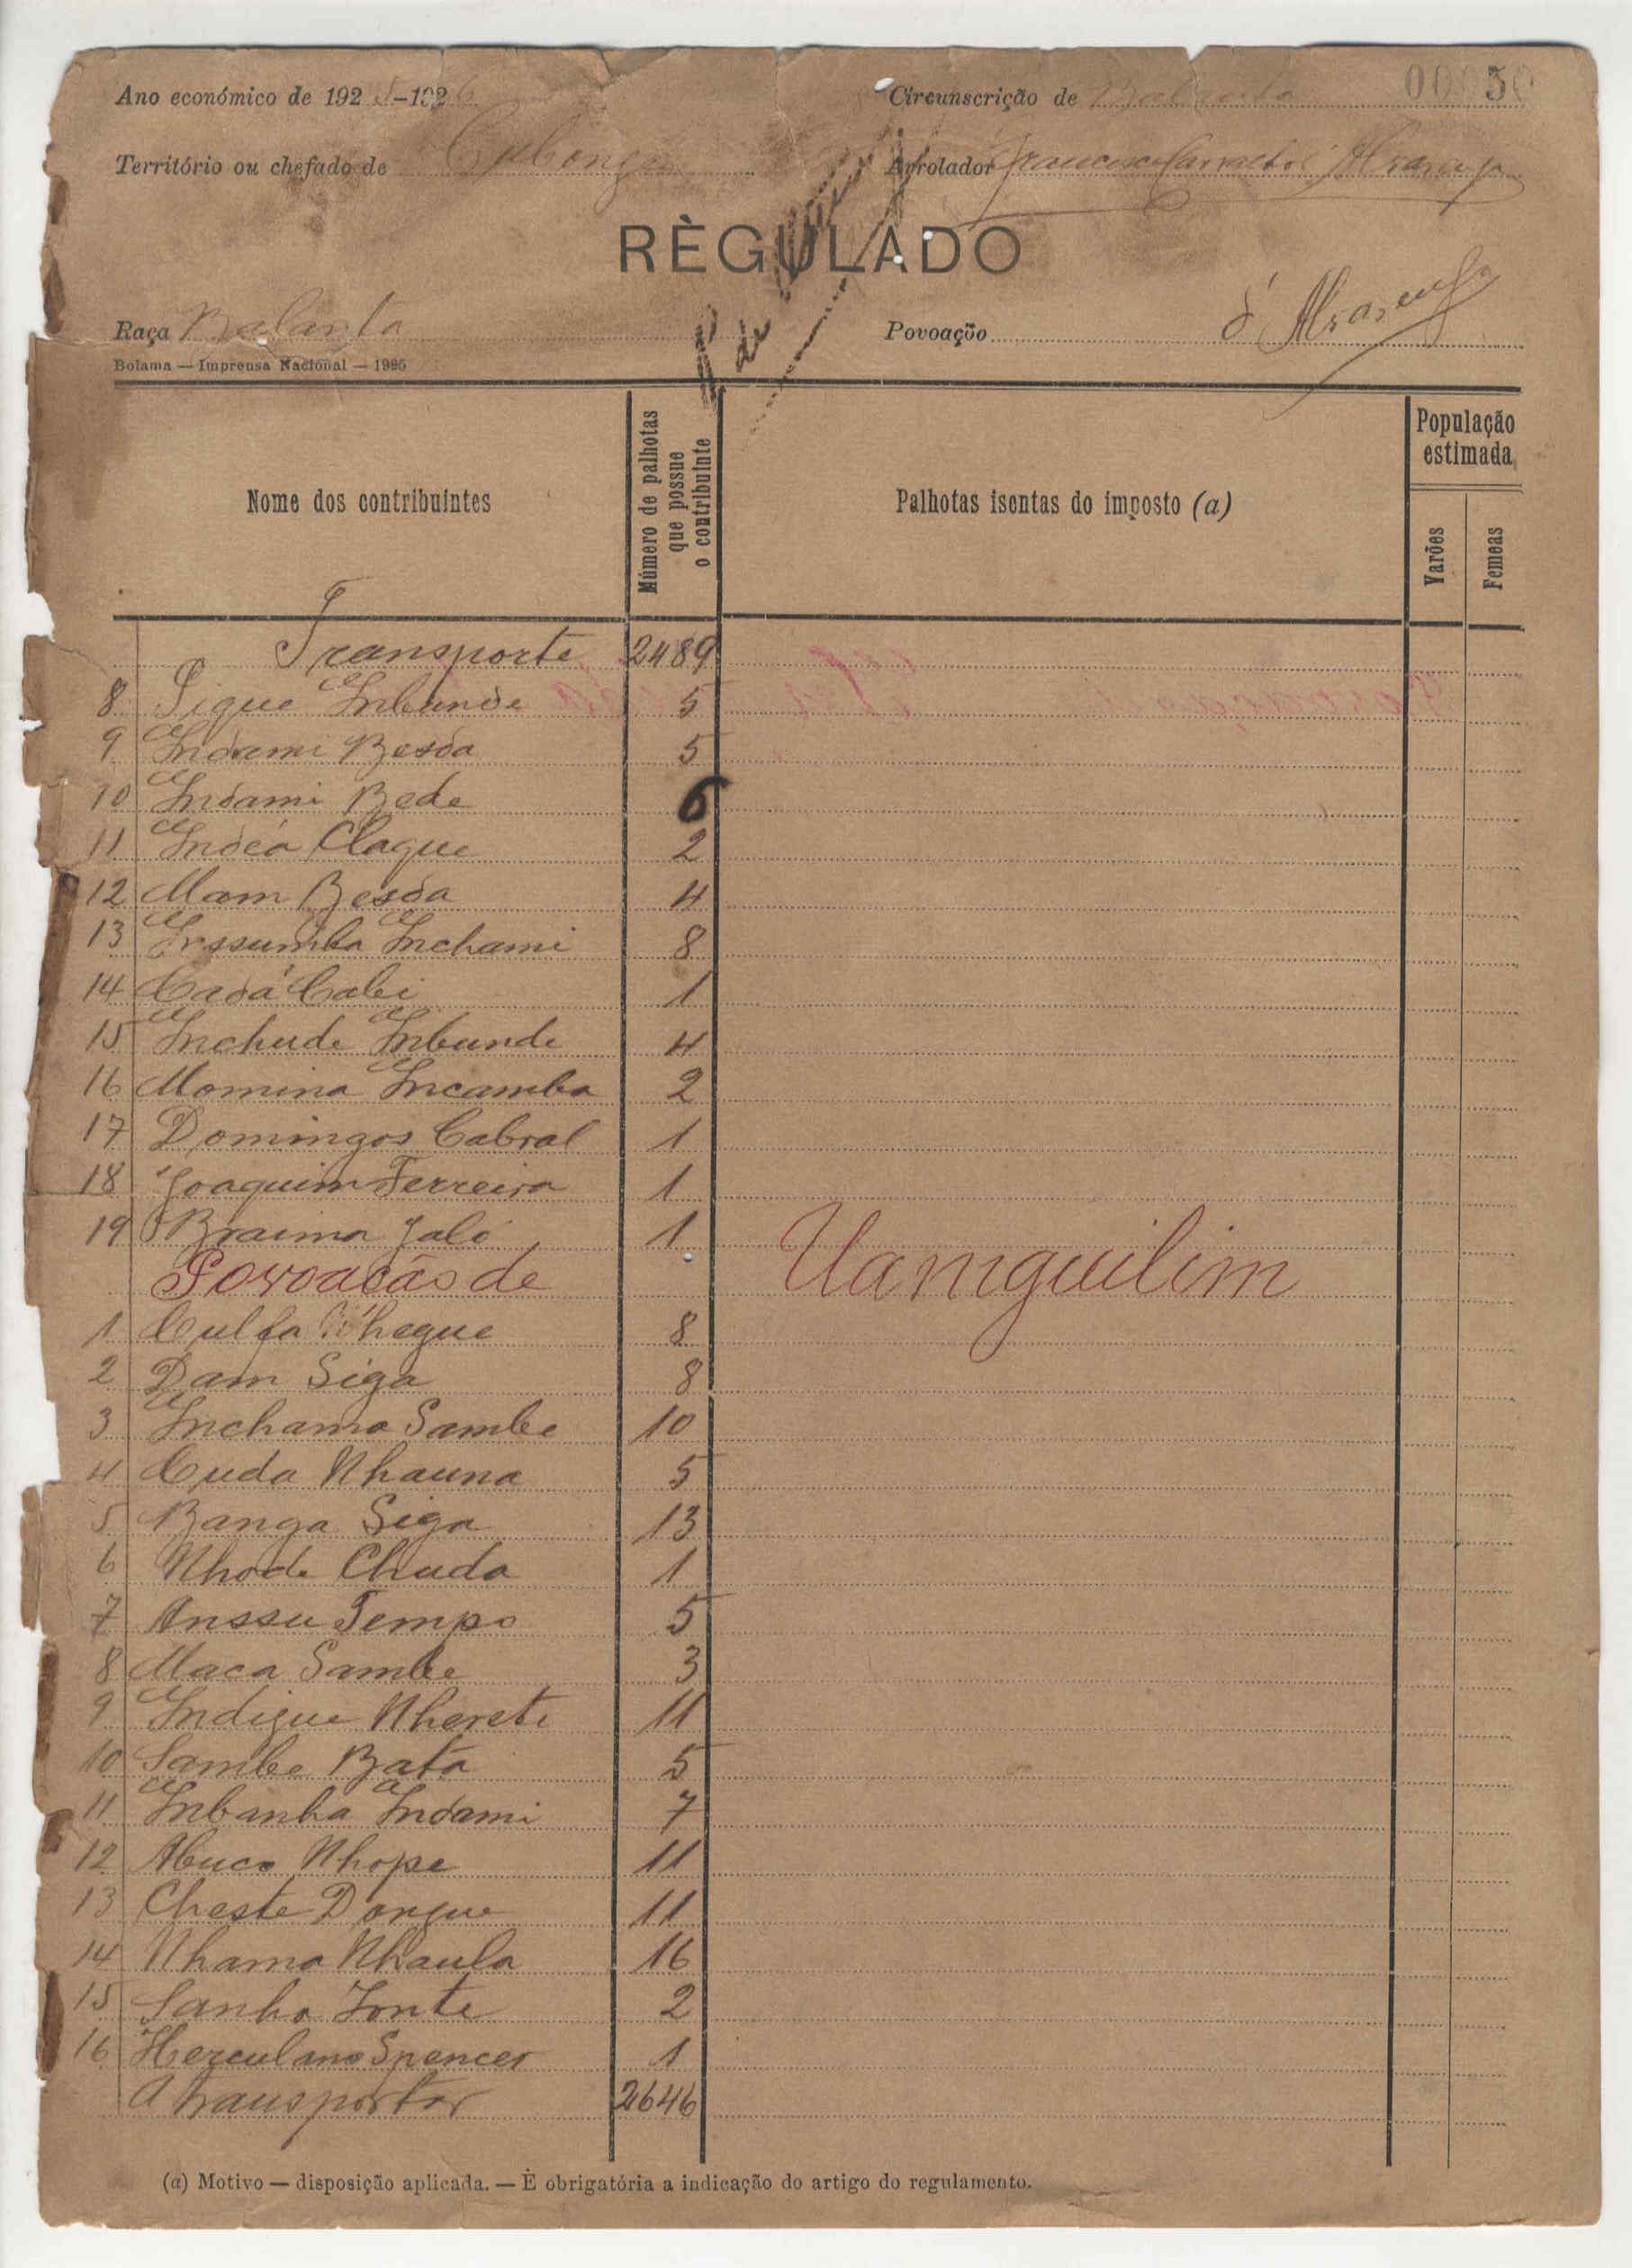 Ano económico de 1925-1926
Circunscrição de
Território ou chefado de
Arrolador Francisco
RÈGULADO
Raça Balanta
Povoação
Bolama — Imprensa Nacional — 1925
Nome dos contribuintes
Número de palhotas que possue o contribuinte
Palhotas isentas do imposto (a)
População estimada
Varões
Femeas
Transporte 2489
8 Sique Inbunde 5
9 Indami Besda 5
10 Indami Bede 6
11 Indeá Claque 2
12 Mam Besda 4
13 Inssumba Inchami 8
14 Cadá Cabi 1
15 Inchude Inbunde 4
16 Momina Incamba 2
17 Domingos Cabral 1
18 Joaquim Ferreira 1
19 Braima Jaló 1
Povoacão de Uamguilim
1 Culfa 8
2 Dam Siga 8
3 Inchama Sambe 10
4 Cuda Nhauna 5
5 Banga Siga 13
6 Nhode Chuda 1
7 Anssu Tempo 5
8 Maca Sambe 3
9 Indigue Nherete 11
10 Sambe Bata 5
11 Inbanha Indami 7
12 Abuco Nhope 11
13 Cheste Dongue 11
14 Nhama Nhaula 16
15 Sanha Fonte 2
16 Herculano Spencer 1
A transportar 2646
(a) Motivo — disposição aplicada. — É obrigatória a indicação do artigo do regulamento.